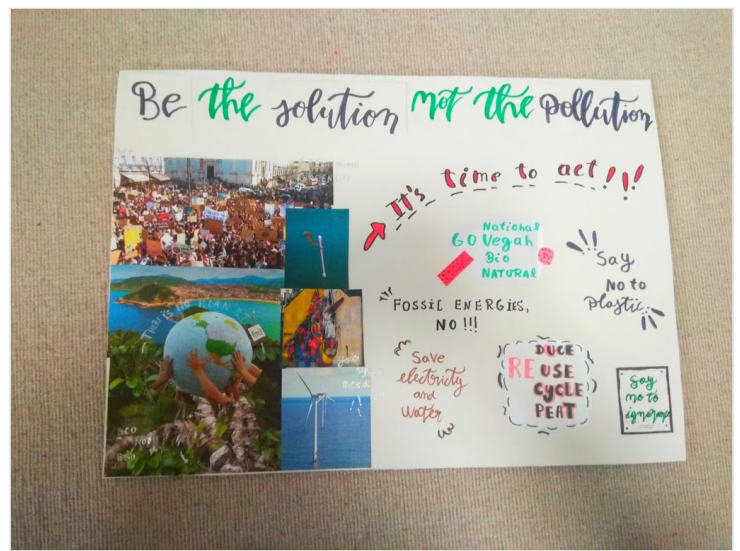 Be the solution not the pollution
It's time to act!!!
National
GO Vegan
Bio
NATURAL
Say
No to
plastic
FOSSIL ENERGIES,
NO!!!
THERE IS NO PLAN
Save
electricity
and
Water
DUCE
RE USE
CYCLE
PEAT
Say
no to
ECO
NOT